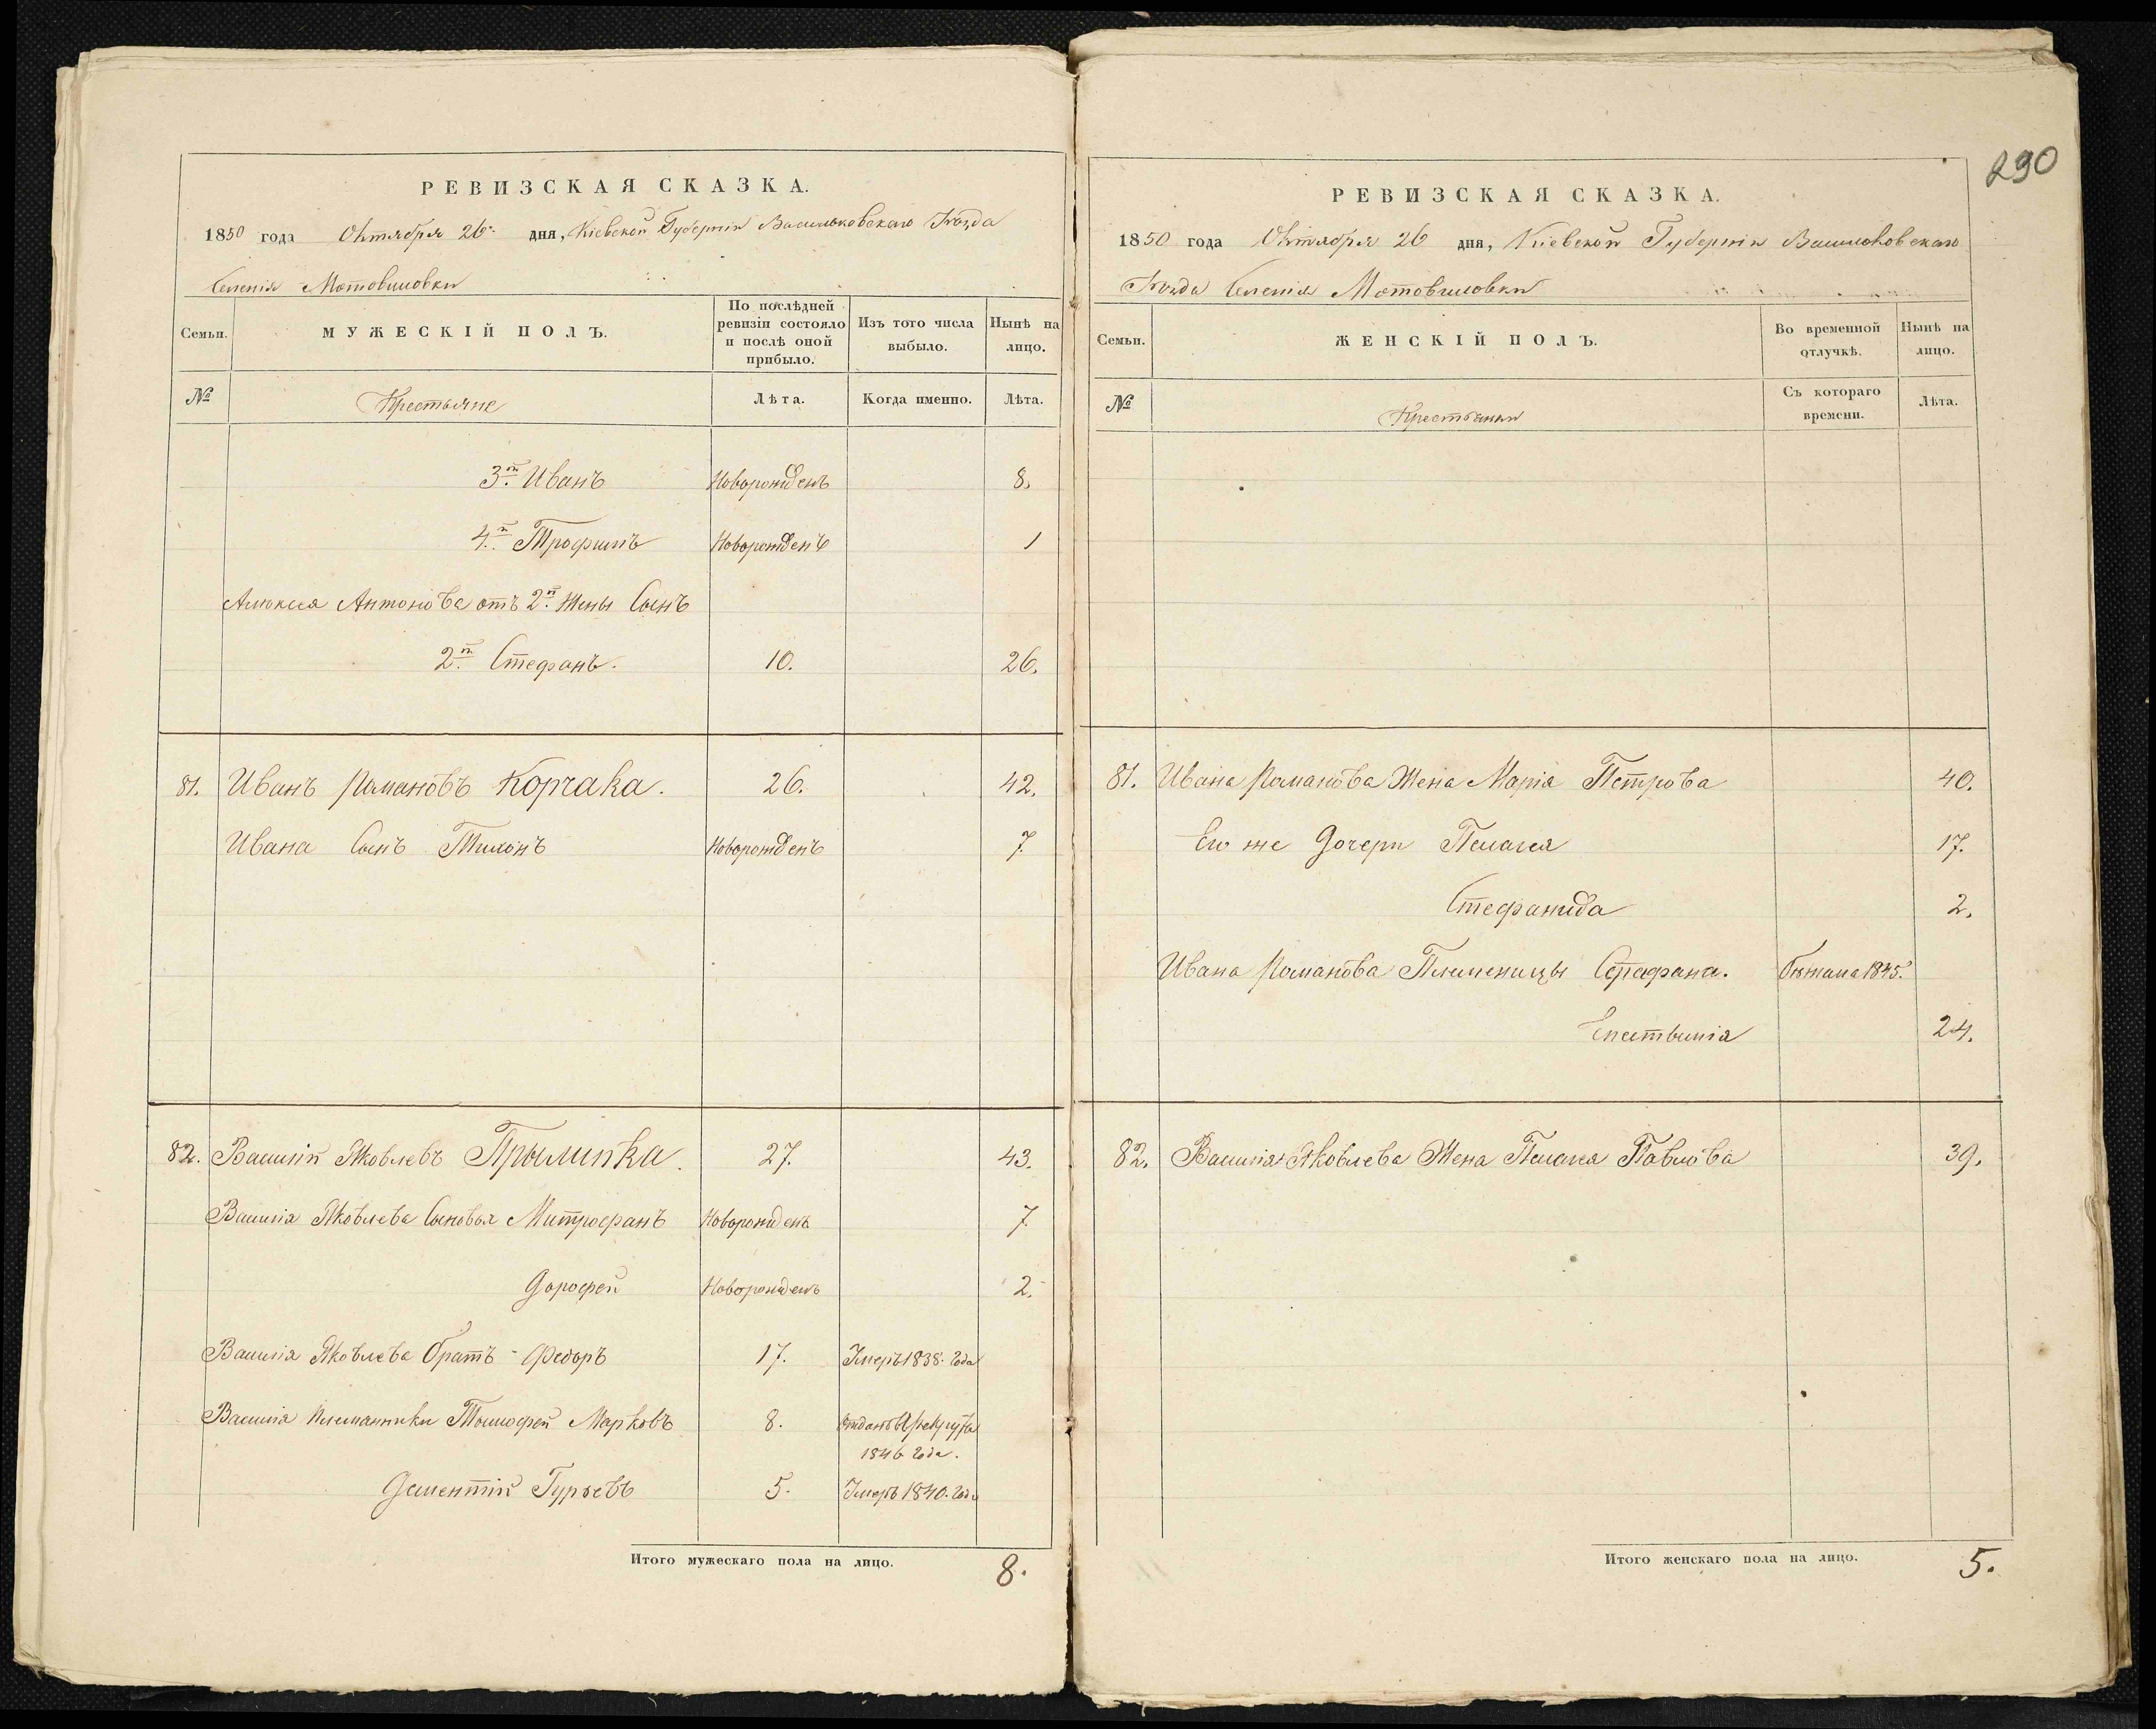 РЕВИЗСКАЯ СКАЗКА.
1850 года Октября 26 дня, Кіевской Губерніи Васильковскаго Уѣзда
Селенія Мотовиловки
Семьи. МУЖЕСКІЙ ПОЛЪ. По послѣдней ревизіи состояло и послѣ оной прибыло. Изъ того числа выбыло. Нынѣ на лицо.
№ Крестьяне Лѣта. Когда именно. Лѣта.
3й Иванъ Новорожденъ 8.
4й Трофимъ Новорожденъ 1
Алексея Антонова отъ 2й Жены Сынъ
2й Стефанъ. 10. 26.
81. Иванъ Романовъ Корчака. 26. 42.
Ивана Сынъ Тихонъ Новорожденъ 7.
82. Василій Яковлевъ Прылипка. 27. 43.
Василія Яковлева Сыновья Митрофанъ Новорожденъ 7
Дорофей Новорожденъ 2.
Василія Яковлева братъ Федоръ 17. Умеръ 1838. года
Василія племянники Тимофей Марковъ 8. Отданъ в рекруты
1846 года.
Дементій Гурьевъ 5. Умеръ 1840. года
Итого мужескаго пола на лицо. 8.
290
РЕВИЗСКАЯ СКАЗКА.
1850 года Октября 26 дня, Кіевской Губерніи Васильковскаго
Уѣзда Селенія Мотовиловки
Семьи. ЖЕНСКІЙ ПОЛЪ. Во временной отлучкѣ. Нынѣ на лицо.
№ Крестьянки Съ котораго времени. Лѣта.
81. Ивана Романова Жена Марія Петрова 40.
Его же Дочери Пелагея 17.
Стефанида 2.
Ивана Романова Племеницы бежала 1845.
24.
82. Василія Яковлева Жена Пелагея Павлова 39.
Итого женскаго пола на лицо. 5.